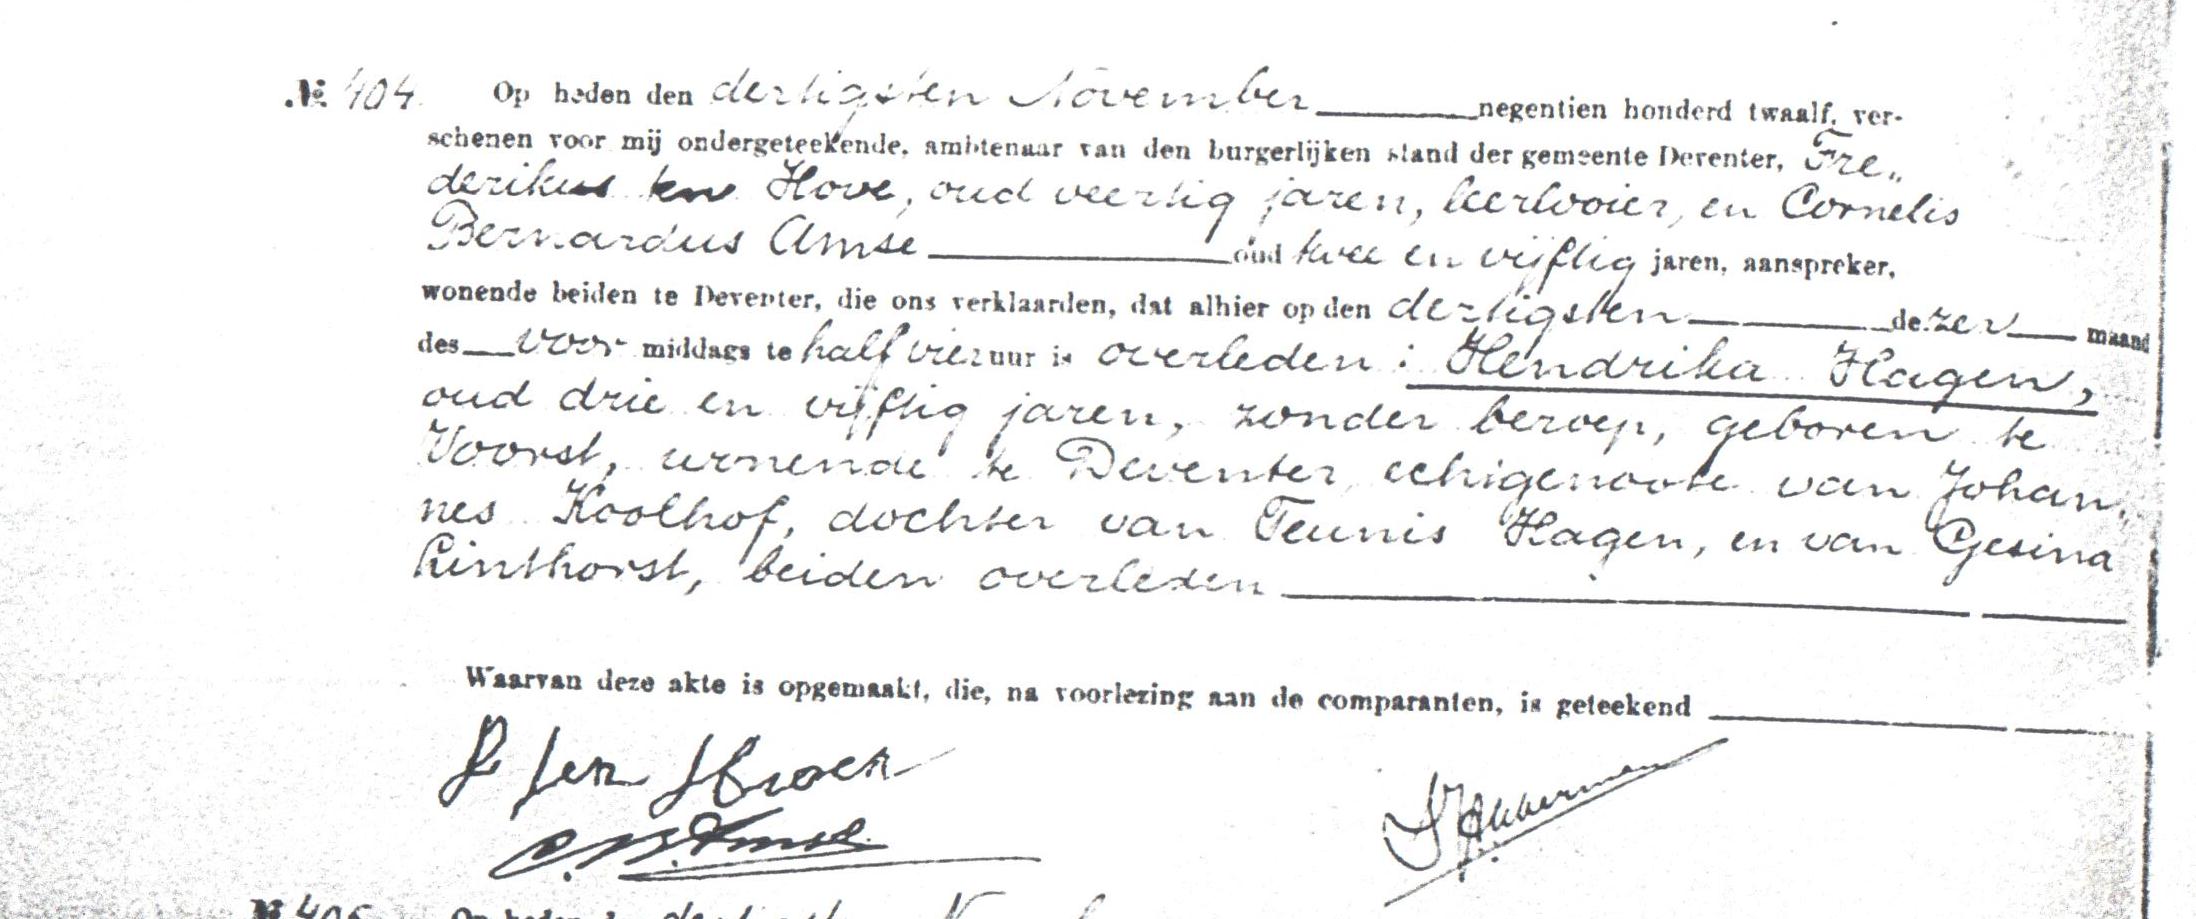 № 404. Op heden den dertigsten November negentien honderd twaalf, ver-
schenen voor mij ondergeteekende, ambtenaar van den burgerlijken stand der gemeente Deventer, Fre„
derikus ten Hove, oud veertig jaren, leerlooier, en Cornelis
Bernardus Amse oud twee en vijftig jaren, aanspreker,
wonende beiden te Deventer, die ons verklaarden, dat alhier op den dertigsten dezer maand
des voor middags te half vier uur is overleden: Hendrika Hagen,
oud drie en vijftig jaren, zonder beroep, geboren te
Voorst, wonende te Deventer, echtgenoote van Johan„
nes Koolhof, dochter van Teunis Hagen, en van Gesina
Linthorst, beiden overleden
Waarvan deze akte is opgemaakt, die, na voorlezing aan de comparanten, is geteekend
ten
C. B. Amse.
№ 405 Op heden